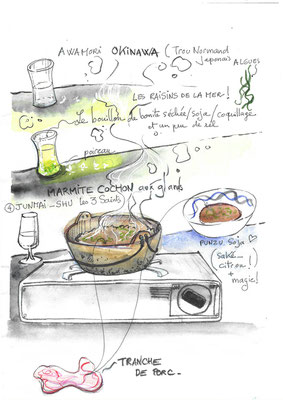 AWAMORI OKINAWA (Trou Normand
japonais)
ALGUES
LES RAISINS DE LA MER !
Le bouillon de bonite séchée/soja/coquillage
et un peu de sel
poireau
MARMITE COCHON aux glands
④ JUNMAI_SHU les 3 Saints)
PUNZU Soja ♡
(saké_
citron !)
+
magie!
TRANCHE
DE PORC_